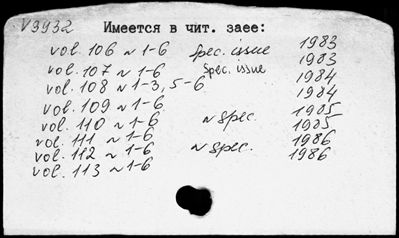 V3932
Имеется в чит. заее:
vol. 106 ~ 1-6 spec. issue 1983
vol. 107 ~ 1-6 spec. issue 1983
vol. 108 ~ 1-3, 5-6 1984
vol. 109 ~ 1-6 1984
vol. 110 ~ 1-6 ~ spec. 1985
vol. 111 ~ 1-6 1985
vol. 112 ~ 1-6 ~ spec. 1986
vol. 113 ~ 1-6 1986